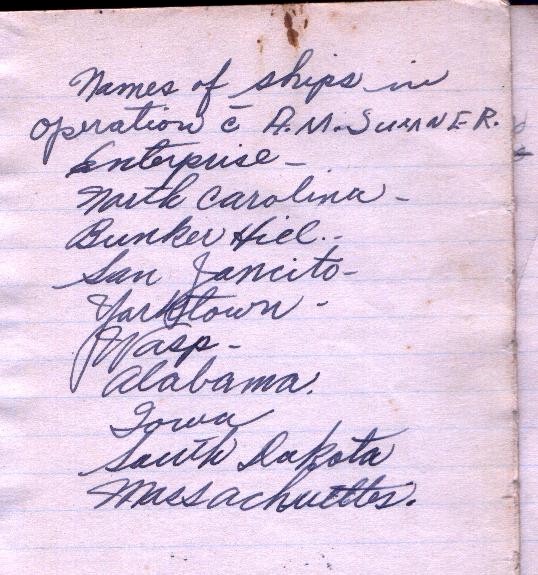 Names of ships in
operation c̄ A.M. SUMNER.
Enterprise -
North Carolina -
Bunker Hill. -
San Jancito -
Yorktown -
Wasp -
Alabama.
Iowa
South Dakota
Massachuttes.